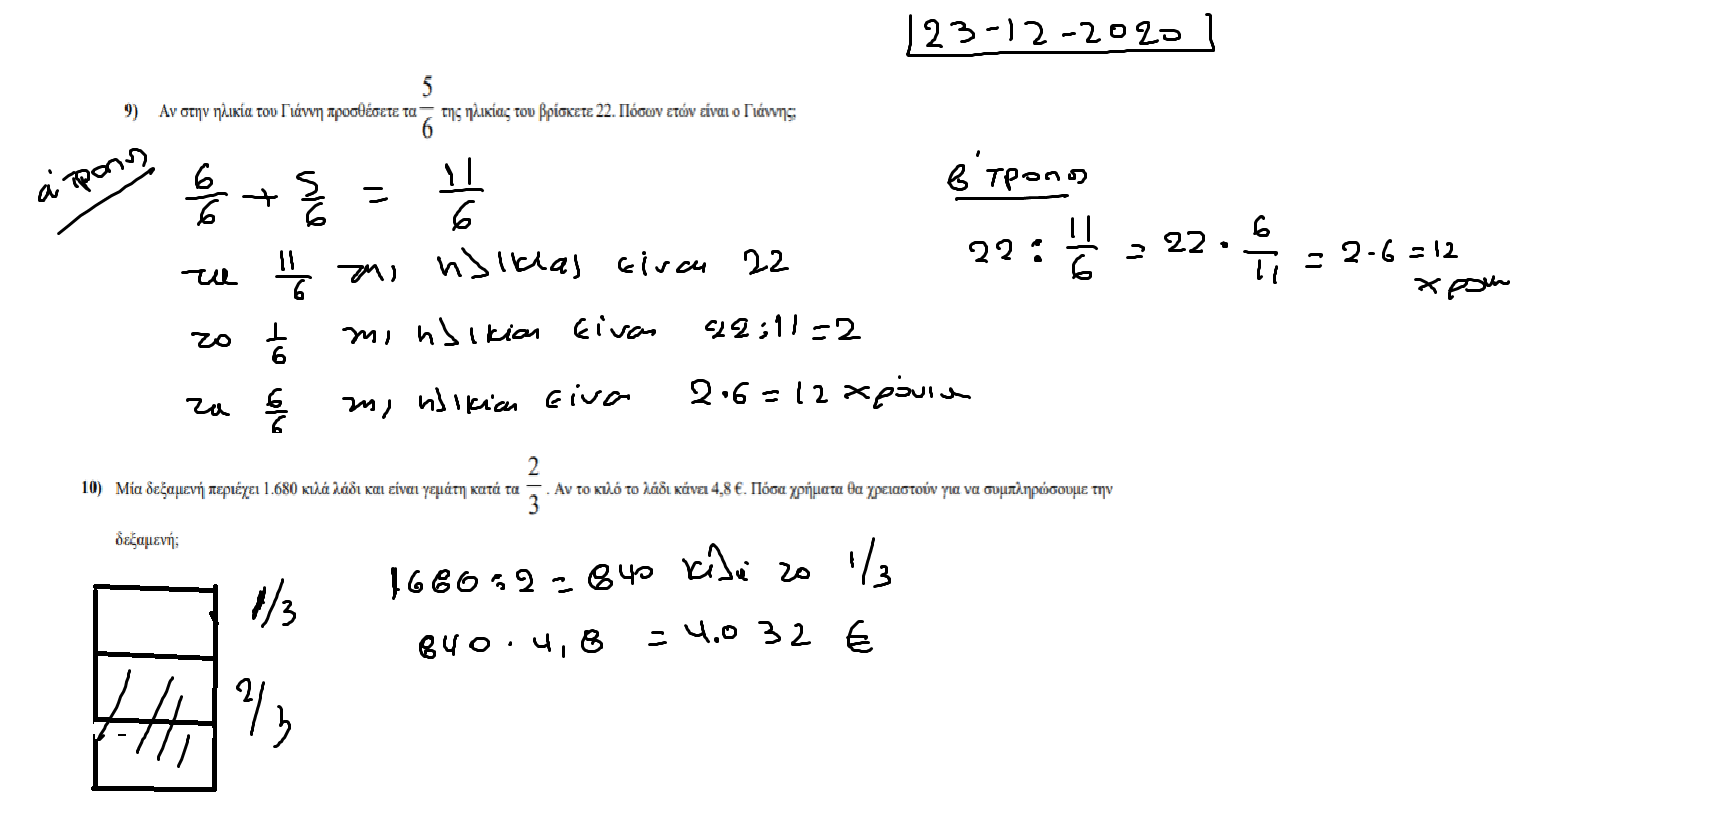 23-12-2020
9) Αν στην ηλικία του Γιάννη προσθέσετε τα 5/6 της ηλικίας του βρίσκετε 22. Πόσων ετών είναι ο Γιάννης;
α' τροπος
6/6 + 5/6 = 11/6
τα 11/6 της ηλικίας είναι 22
το 1/6 της ηλικίας είναι 22:11=2
τα 6/6 της ηλικίας είναι 2·6=12 χρόνια
β' τροπος
22 : 11/6 = 22 · 6/11 = 2·6 = 12
χρονια
10) Μία δεξαμενή περιέχει 1.680 κιλά λάδι και είναι γεμάτη κατά τα 2/3. Αν το κιλό το λάδι κάνει 4,8 €. Πόσα χρήματα θα χρειαστούν για να συμπληρώσουμε την
δεξαμενή;
1/3
2/3
1680:2=840 κιλά το 1/3
840·4,8 = 4.032 €